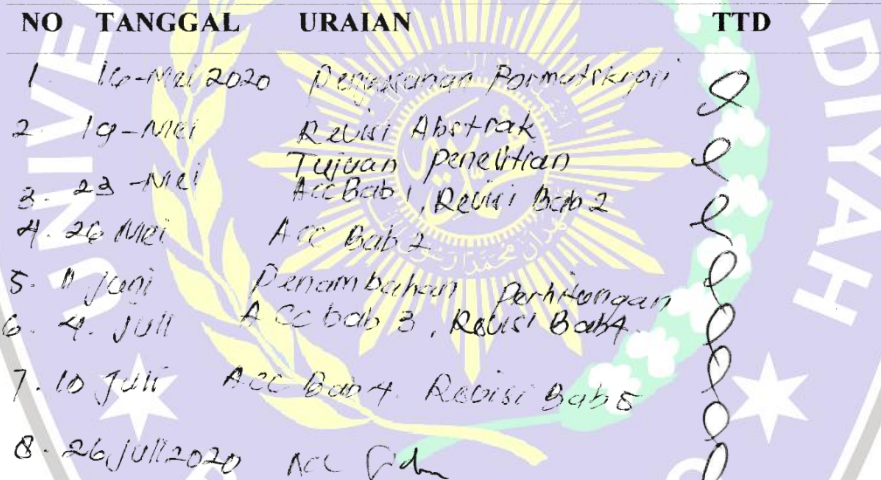 NO TANGGAL URAIAN TTD
1. 16-Mei 2020 Format skripsi
2. 19-Mei Revisi Abstrak
Tujuan penelitian
3. 23-Mei Acc Bab 1, Revisi Bab 2
4. 26 Mei Acc Bab 2
5. 11 Juni Penambahan Perhitungan
6. 4. Juli Acc bab 3, Revisi Bab 4.
7. 10 Juli Acc Bab 4. Revisi Bab 5
8. 26, Juli 2020 Acc